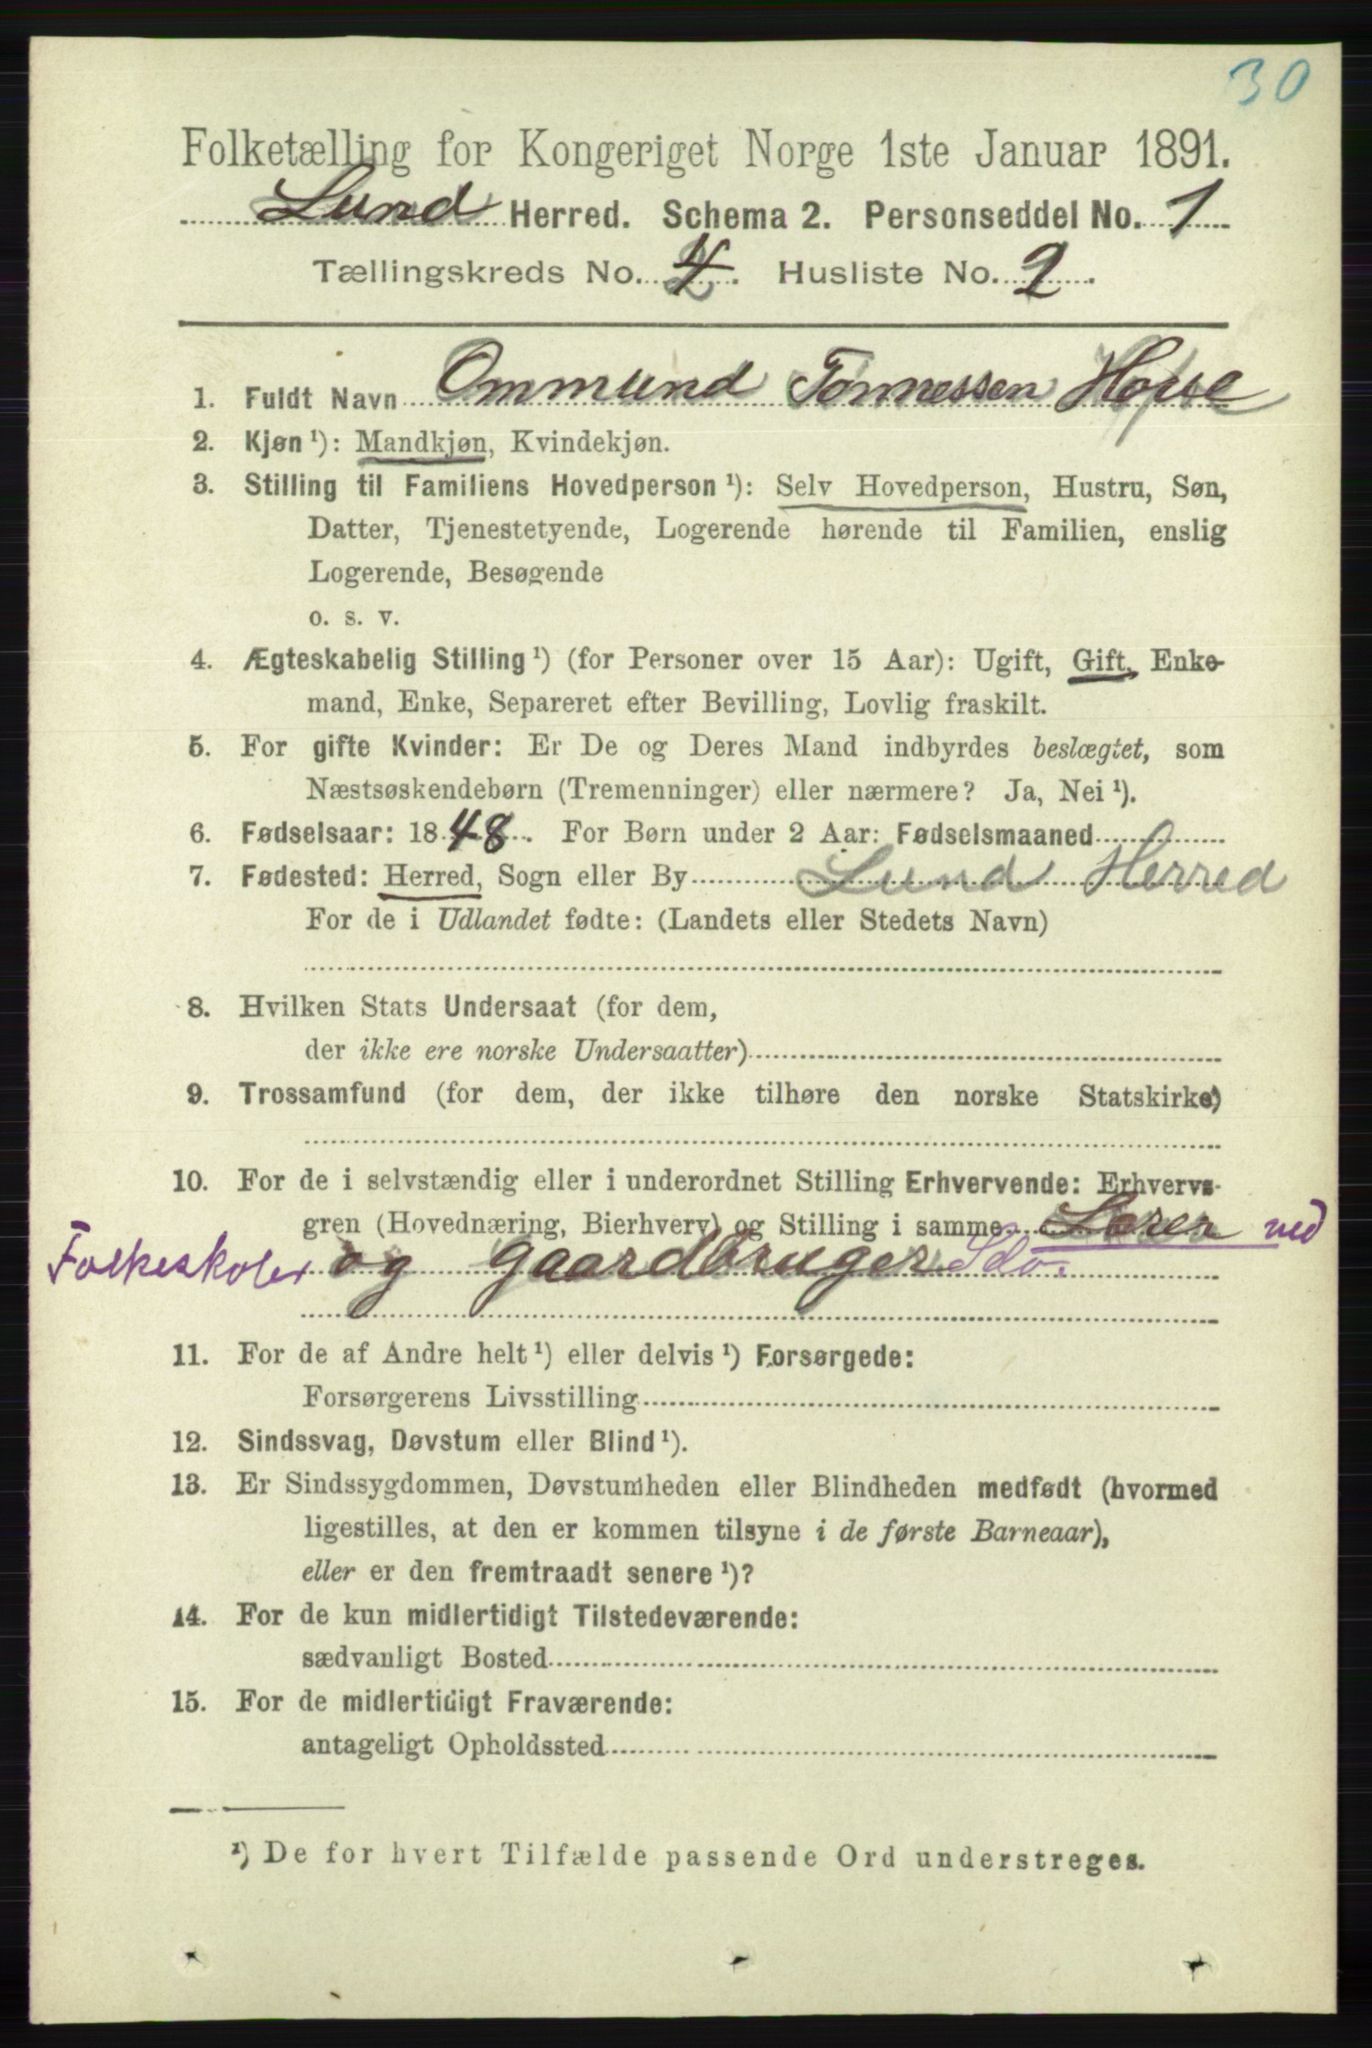 30
Folketælling for Kongeriget Norge 1ste Januar 1891.
Lund Herred. Schema 2. Personseddel No. 1
Tællingskreds No. 4. Husliste No. 2.
1. Fuldt Navn Ommund Tønnessen
2. Kjøn ¹): Mandkjøn, Kvindekjøn.
3. Stilling til Familiens Hovedperson ¹): Selv Hovedperson, Hustru, Søn,
Datter, Tjenestetyende, Logerende hørende til Familien, enslig
Logerende, Besøgende
o. s. v.
4. Ægteskabelig Stilling ¹) (for Personer over 15 Aar): Ugift, Gift, Enke-
mand, Enke, Separeret efter Bevilling, Lovlig fraskilt.
5. For gifte Kvinder: Er De og Deres Mand indbyrdes beslægtet, som
Næstsøskendebørn (Tremenninger) eller nærmere? Ja, Nei ¹).
6. Fødselsaar: 1848. For Børn under 2 Aar: Fødselsmaaned
7. Fødested: Herred, Sogn eller By Lund Herred
For de i Udlandet fødte: (Landets eller Stedets Navn)
8. Hvilken Stats Undersaat (for dem,
der ikke ere norske Undersaatter)
9. Trossamfund (for dem, der ikke tilhøre den norske Statskirke)
10. For de i selvstændig eller i underordnet Stilling Erhvervende: Erhvervs-
gren (Hovednæring, Bierhverv) og Stilling i samme Lærer ved
Folkeskolen og gaardbruger Selv.
11. For de af Andre helt ¹) eller delvis ¹) Forsørgede:
Forsørgerens Livsstilling
12. Sindssvag, Døvstum eller Blind ¹).
13. Er Sindssygdommen, Døvstumheden eller Blindheden medfødt (hvormed
ligestilles, at den er kommen tilsyne i de første Barneaar),
eller er den fremtraadt senere ¹)?
14. For de kun midlertidigt Tilstedeværende:
sædvanligt Bosted
15. For de midlertidigt Fraværende:
antageligt Opholdssted
¹) De for hvert Tilfælde passende Ord understreges.